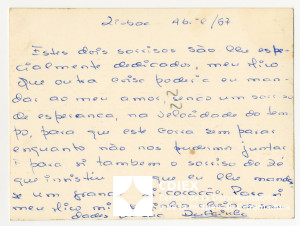 Lisboa 4 Abril/67
Estes dois sorrisos são lhe espe-
cialmente dedicados, meu
que outra coisa poderia eu man-
dar ao meu amor, senão um sorriso
de esperança, na velocidade do tem-
po, para que este corra sem parar
enquanto não nos pudermos juntar
e para si também o sorriso do Zé
que insistiu que eu lhe mandas-
se um grande coração. Para si
meu
dades